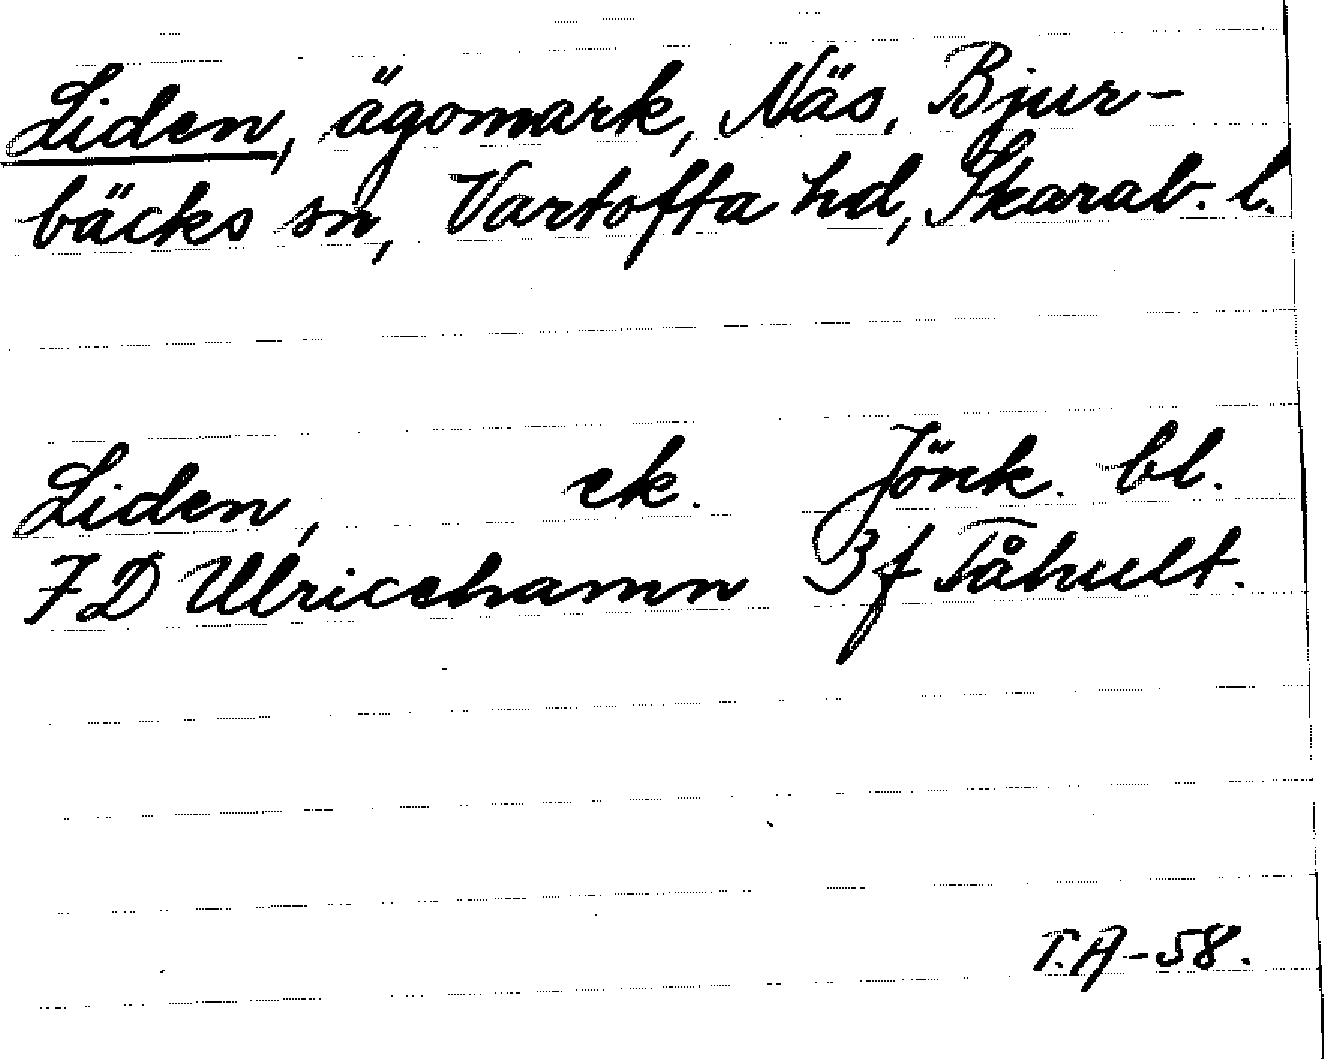 Liden, ägomark, Näs, Bjur-
bäcks sn, Vartofta hd, Skarab. l.
Liden, ek. Jönk. bl.
7D Ulricehamn 3f Tåhult.
T.A-58.